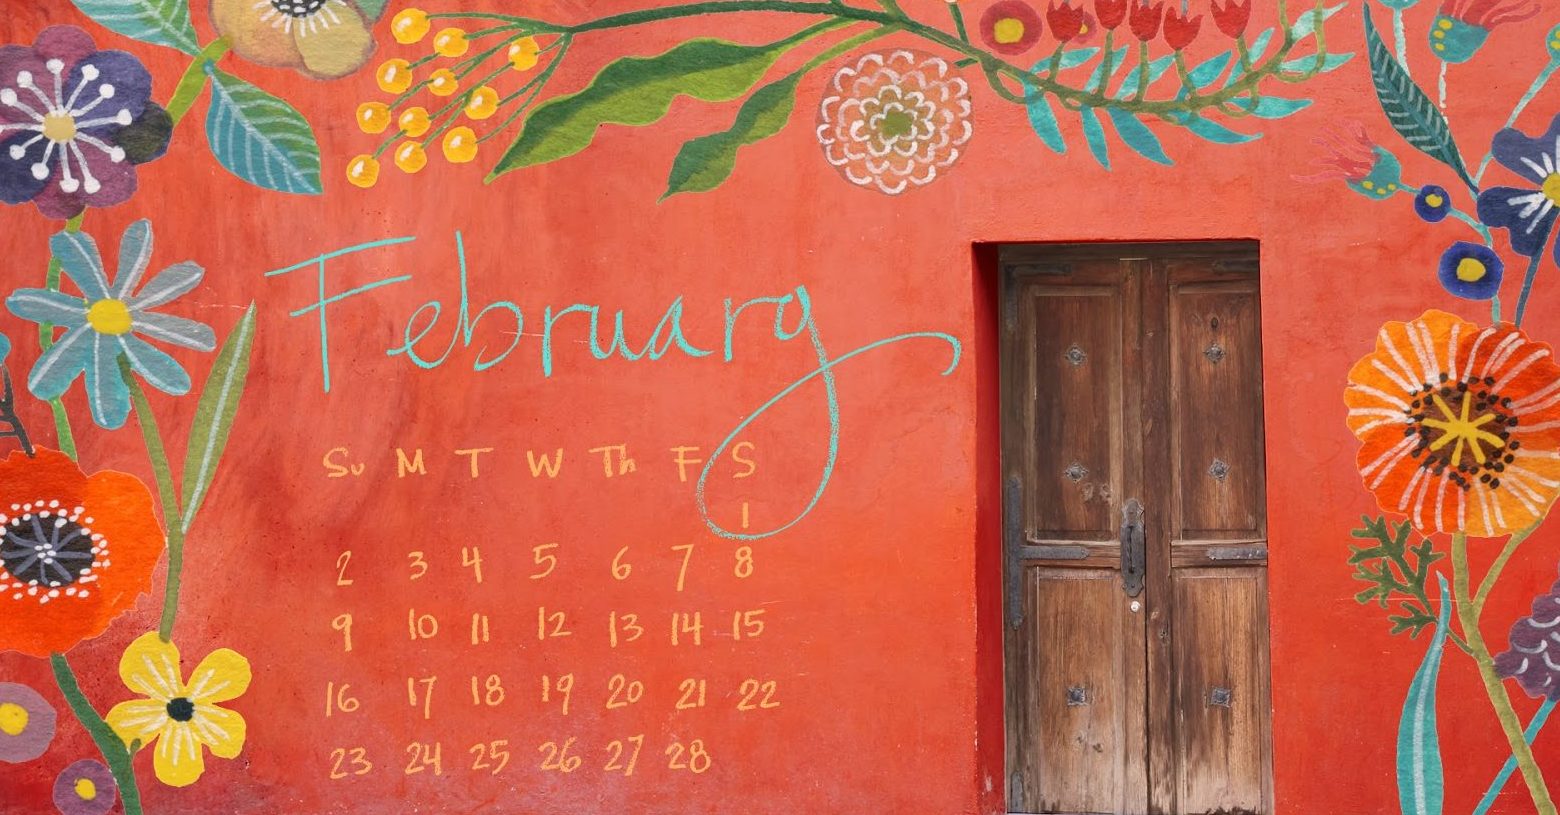 February
Su M T W Th F S
1
2 3 4 5 6 7 8
9 10 11 12 13 14 15
16 17 18 19 20 21 22
23 24 25 26 27 28